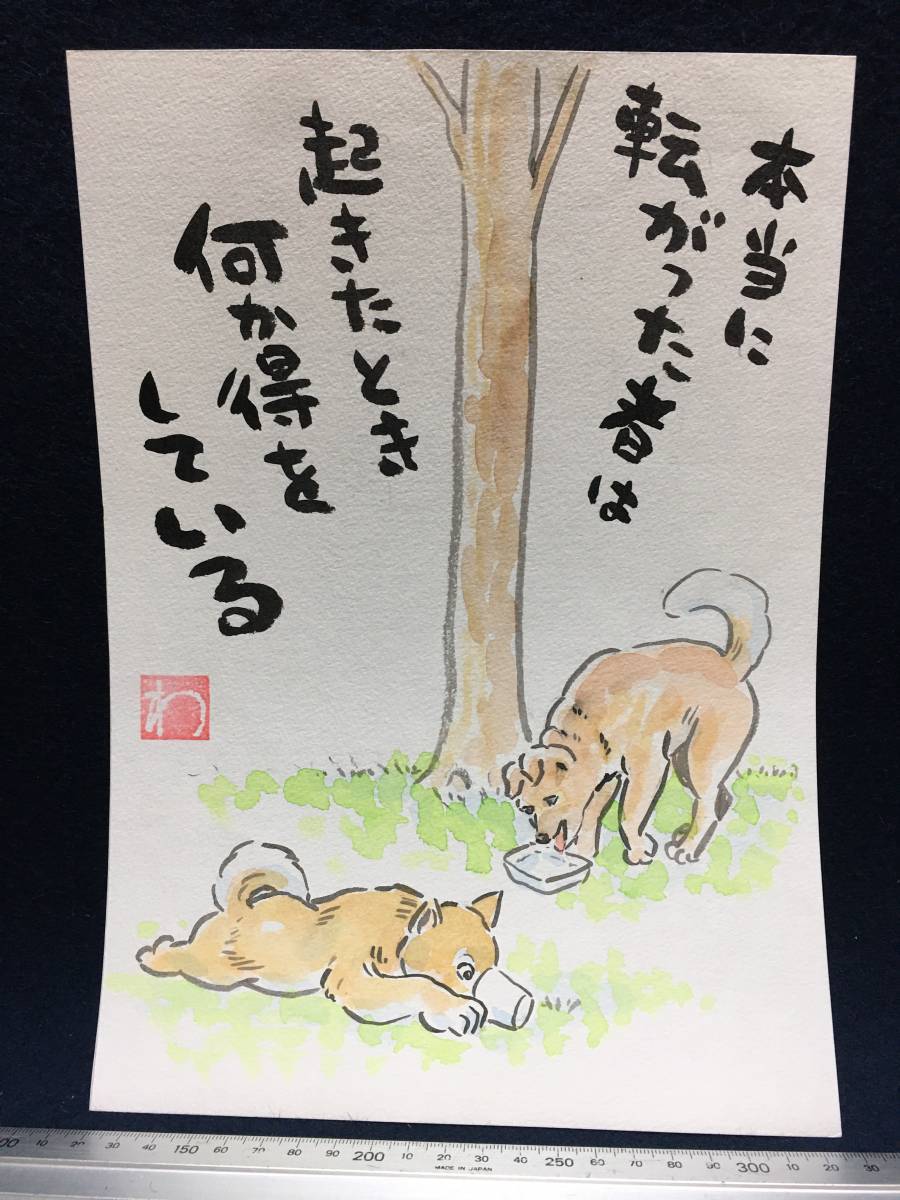 本当に
転がった者は
起きたとき
何か得を
している
わ
00 10 20 30 40 150 60 70 80 90 200 10 20 30 40 250 60 70 80 90 300 10 20 30
MADE IN JAPAN